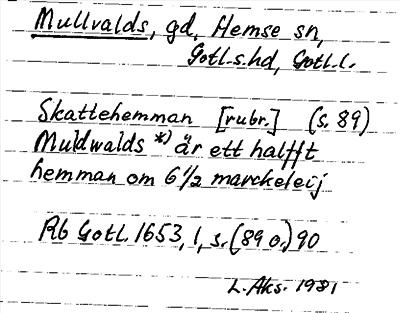 Mullvalds, gd, Hemse sn,
Gotl.s.hd, Gotl.l.
Skattehemman [rubr.] (s. 89)
Muldwalds *) är ett halfft
hemman om 6 1/2 marckeleij
Rb Gotl. 1653, 1, s. (89 o.) 90
L. Aks. 1981